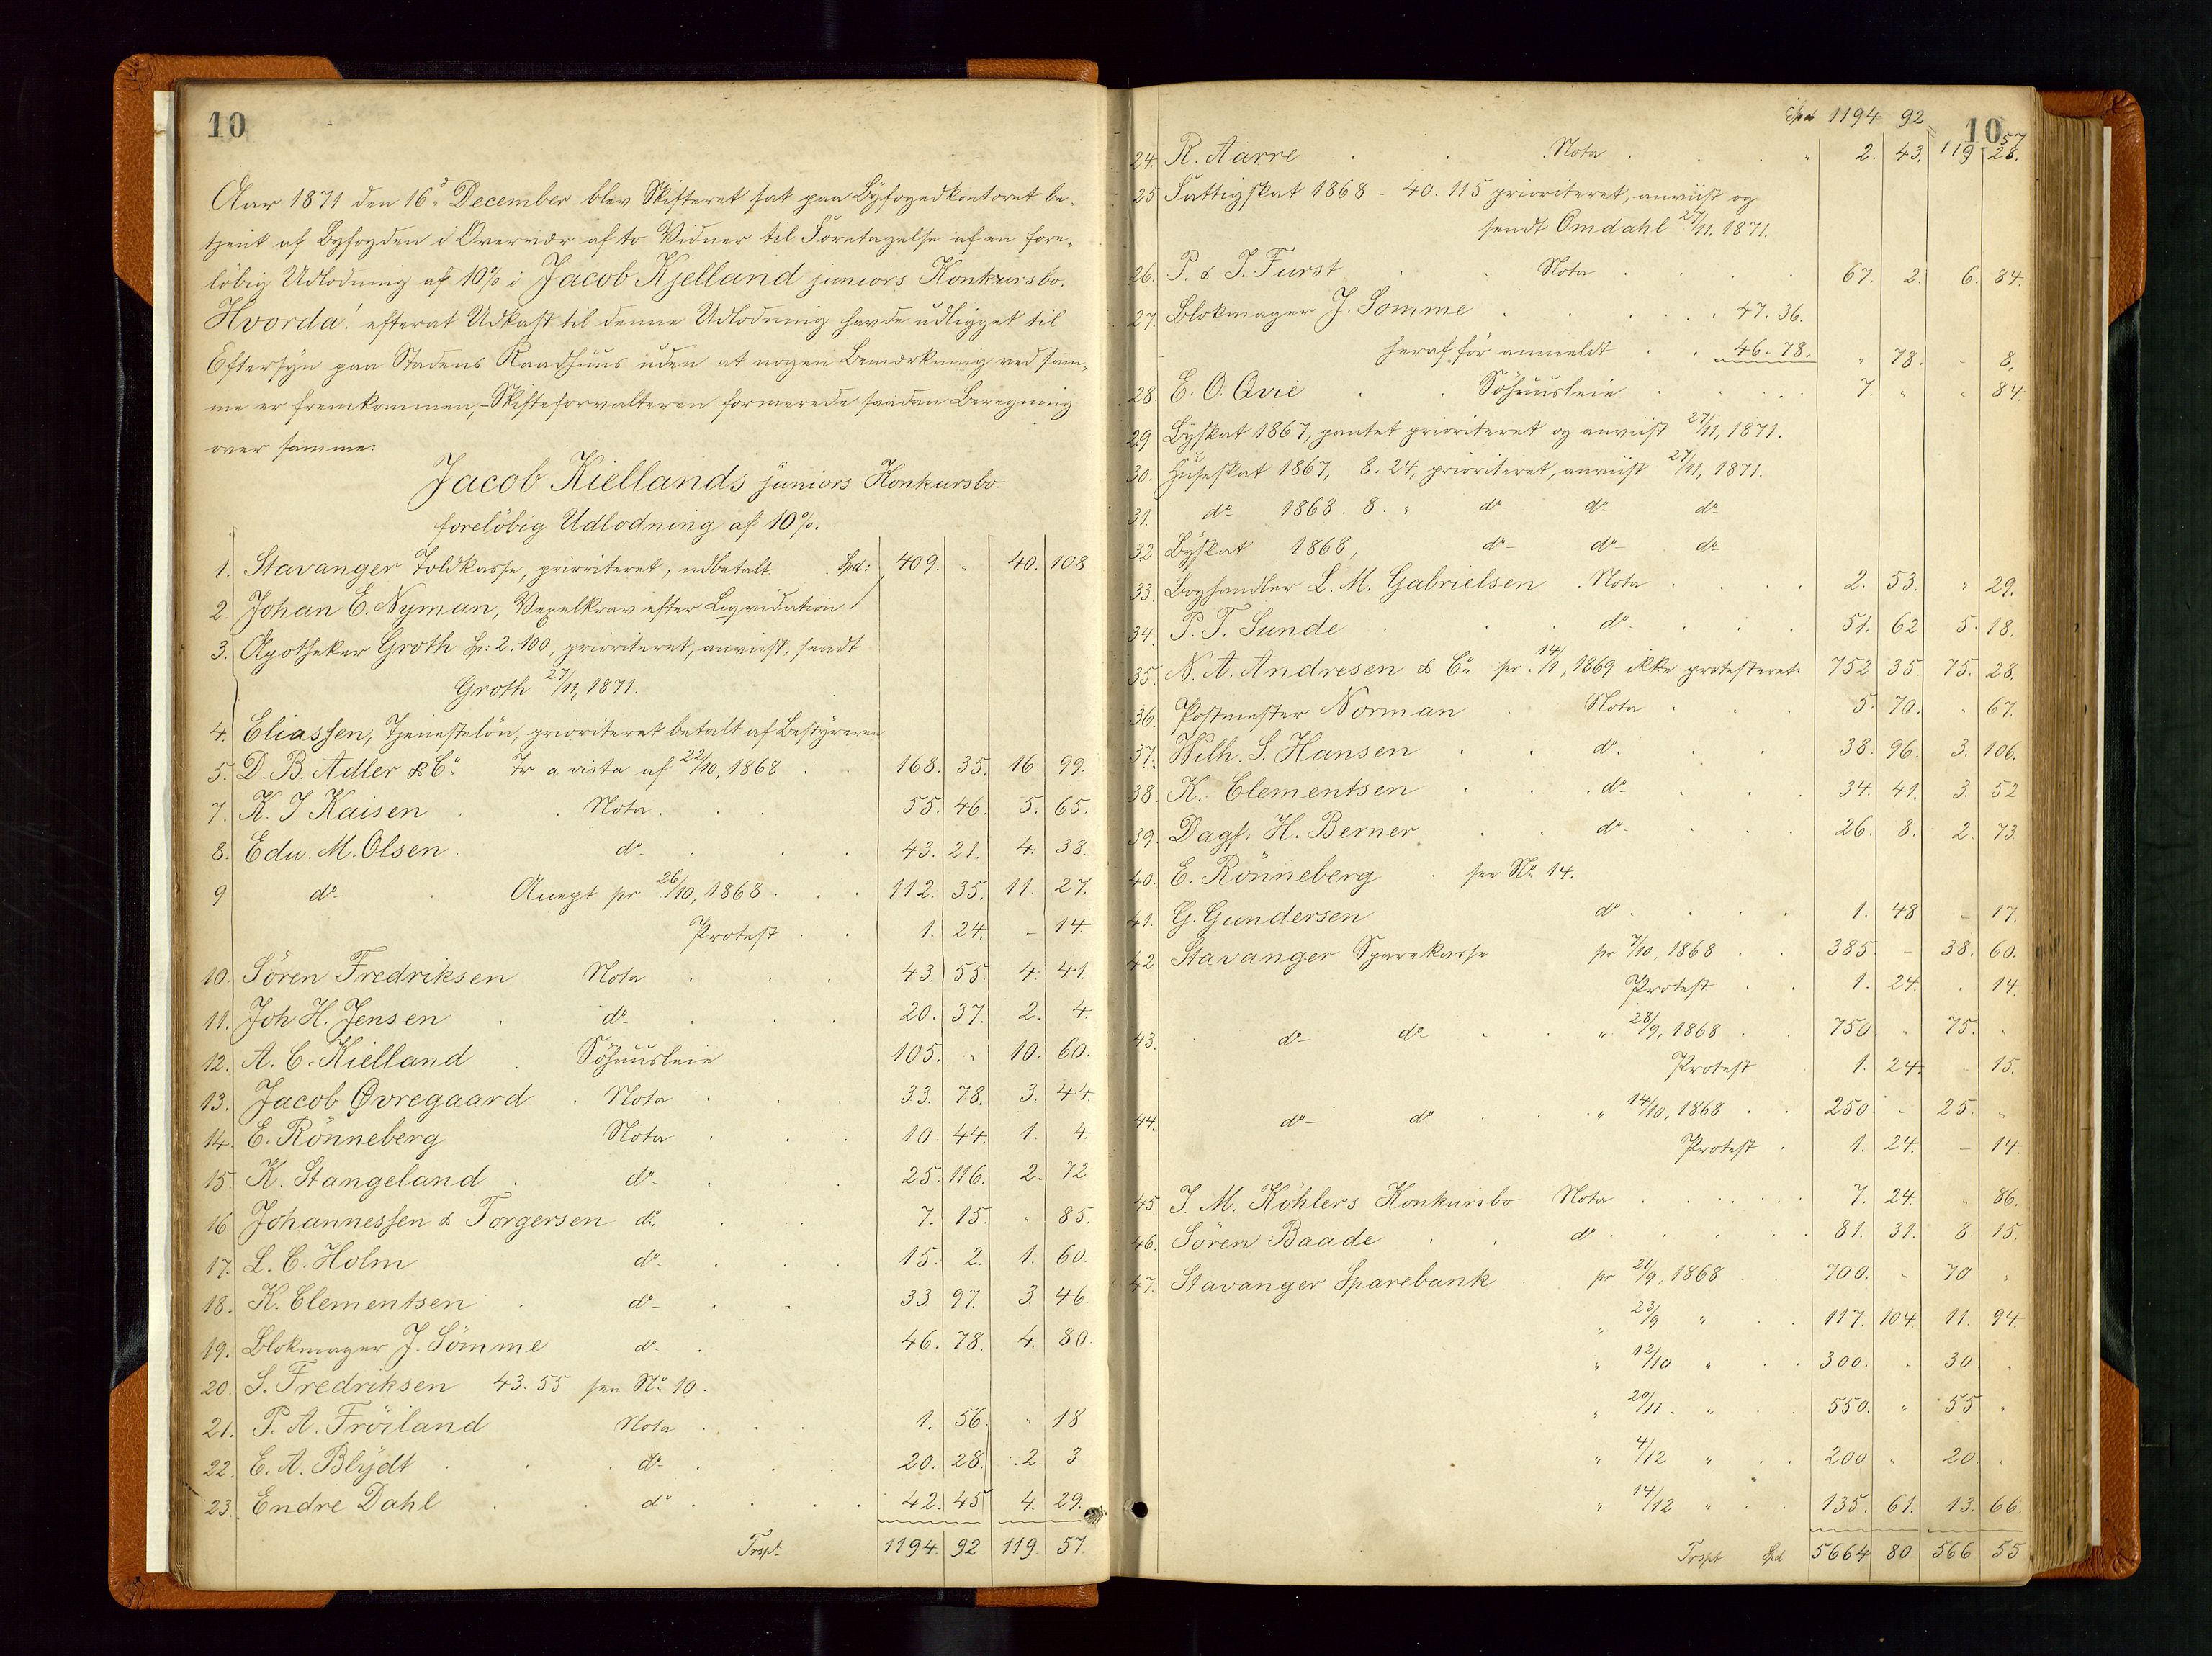 10
Aar 1871 den 16de December blev Skifteret sat paa Byfogedkontoret be-
tjent af Byfogden i Overvær af to Vidner til Foretagelse af en fore-
löbig Udlodning af 10% i Jacob Kjelland juniors Konkursbo.
Hvorda! efterat Udkast til denne Udlodning havde udligget til
Eftersyn paa Stadens Raadhuus uden at nogen Bemærkning ved sam-
me er fremkommen, - Skifteforvalteren formerede saadan Beregning
over samme:
Jacob Kiellands juniors Konkursbo.
foreløbig Udlodning af 10%.
1. Stavanger Toldkasse, prioriteret, udbetalt Spd: 409. " 40. 108
2. Johan E. Nyman, Vexelkrav efter Liqvidation
3. Apotheker Groth Sp: 2.100, prioriteret, anvist, sendt
Groth 27/11, 1871.
4. Eliassen, Tjenestelön, prioriteret betalt af Bestyreren
5. D. B. Adler & Co. Tr a vista af 22/10, 1868 . . 168. 35. 16. 99.
7. K. J. Kaisen . . Nota . . . 55. 46. 5. 65.
8. Edw. M. Olsen . do . . . 43. 21. 4. 38.
9 do . Accept pr 26/10, 1868 . . . 112. 35. 11. 27.
Protest . . 1. 24. - 14.
10. Sören Fredriksen Nota . . . 43. 55. 4. 41.
11. Joh H. Jensen . do . . . 20. 37. 2. 4.
12. A. C. Kielland . Söhuusleie 105. " 10. 60.
13. Jacob Øvregaard . Nota . . . 33. 78. 3. 44.
14. E. Rönneberg Nota . . . 10. 44. 1. 4.
15. K. Stangeland . do . . . 25. 116. 2. 72
16. Johannessen & Torgersen do . . 7. 15. " 85.
17. L. C. Holm do . . . 15. 2. 1. 60.
18. K. Clementsen . do . . 33. 97. 3. 46.
19. Blokmager J. Sömme do . 46. 78. 4. 80.
20. S. Fredriksen 43. 55 see No. 10.
21. P. A. Fröiland Nota . . . 1. 56. " 18
22. E. A. Blÿdt . . do . . . 20. 28. 2. 3.
23. Endre Dahl . . do . . . . 42. 45 4. 29.
Trspt. 1194. 92 119. 57.
Spd 1194 92 10
57
24. R. Aarre . . Nota . . . " 2. 43. 119 28.
25 Fattigskat 1868 - 40. 115 prioriteret, anviist og
sendt Omdahl 27/11. 1871.
26. P. & J. Furst . . Nota . . . . 67. 2. 6. 84.
27. Blokmager J. Somme . . . . . 47. 36.
heraf för anmeldt . . 46. 78. " 78. " 8.
28. E. O. Qvie . . Söhuusleie . . . . 7. " " 84.
29 Byskat 1867, pantet prioriteret og anviist 27/11, 1871.
30. Huseskat 1867, 8. 24, prioriteret, anviist 27/11, 1871.
31. do 1868. 8. " do do do
32 Byskat 1868, do do do
33. Boghandler L. M. Gabrielsen . Nota . . . . 2. 53. " 29.
34. P. T. Sunde . . do . . . . 51. 62 5. 18.
35. N. A. Andresen & Co. pr. 14/1, 1869 ikke protesteret. 752 35. 75. 28.
36. Postmester Norman . Nota . . . 5. 70. " 67.
37. Wilh. S. Hansen . . do . . . 38. 96. 3. 106.
38. K. Clementsen . . . do . . . 34. 41. 3. 52
39. Dagf. H. Berner . . do . . . 26. 8. 2. 73.
40. E. Rönneberg . see No. 14.
41. G. Gundersen do . . . . 1. 48 - 17.
42 Stavanger Sparekasse pr 7/10, 1868 . . 385. - 38. 60.
Protest . . 1. 24. . 14.
43. do do . . " 28/9, 1868 . . 750. " 75. "
Protest 1. 24. . 15.
44. do do . . " 14/10, 1868 . . 250. - 25. "
Protest . 1. 24. - 14.
45. J. M. Köhlers Konkursbo Nota . . . . . . 7. 24. " 86.
46. Sören Baade . . do . . . . . 81. 31. 8. 15.
47. Stavanger Sparebank . pr 21/9, 1868 700. - 70 "
" 23/9 " . . 117. 104. 11. 94.
" 12/10 " . . 300. " 30. .
" 20/11. " . . 550. " 55 "
" 4/12 " . . 200 " 20. .
" 14/12 " . . 135. 61. 13. 66.
Trspt Spd 5664 80 566 55